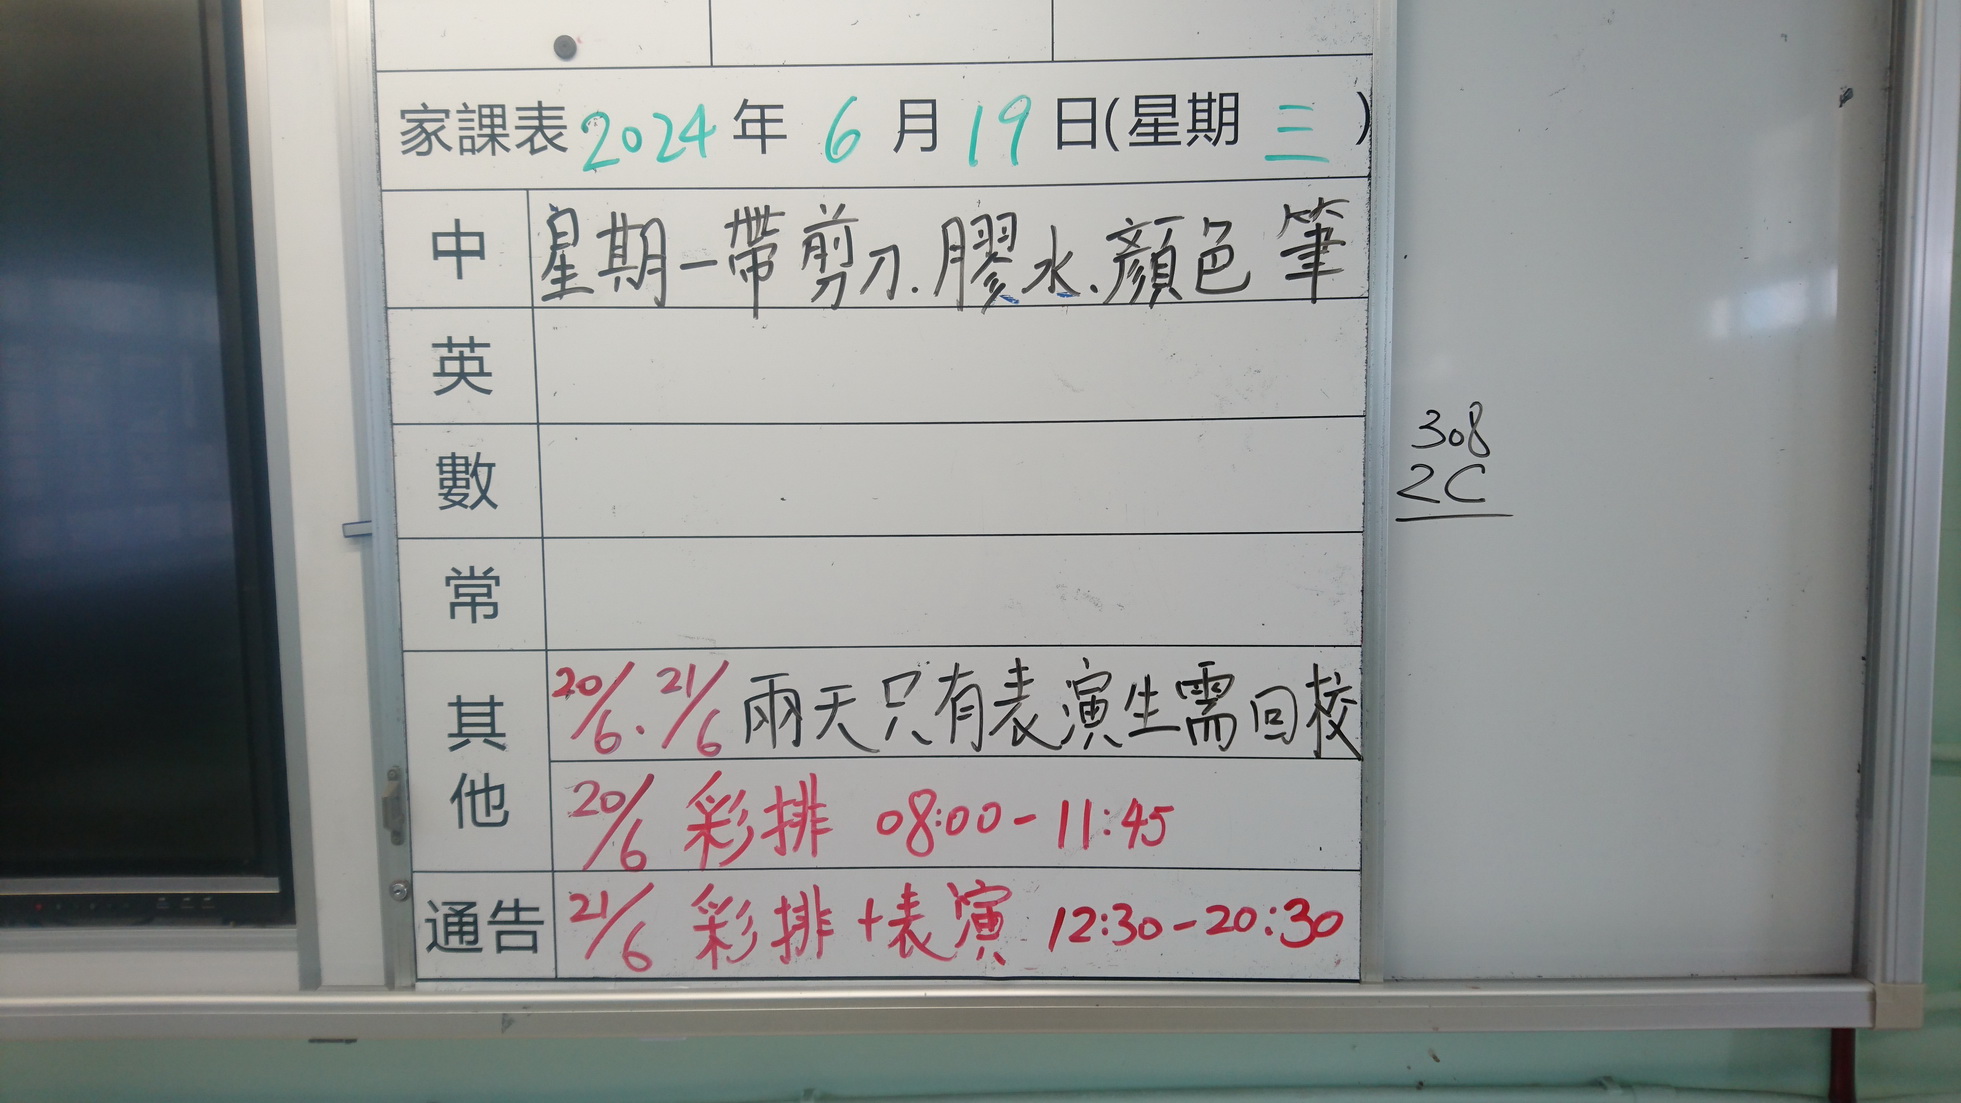 家課表 2024 年 6 月 19 日(星期 三 )
中 星期一帶剪刀.膠水.顏色筆
英
數
常
其他 20/6.21/6 兩天只有表演生需回校
20/6 彩排 08:00-11:45
通告 21/6 彩排+表演 12:30-20:30
308
2C